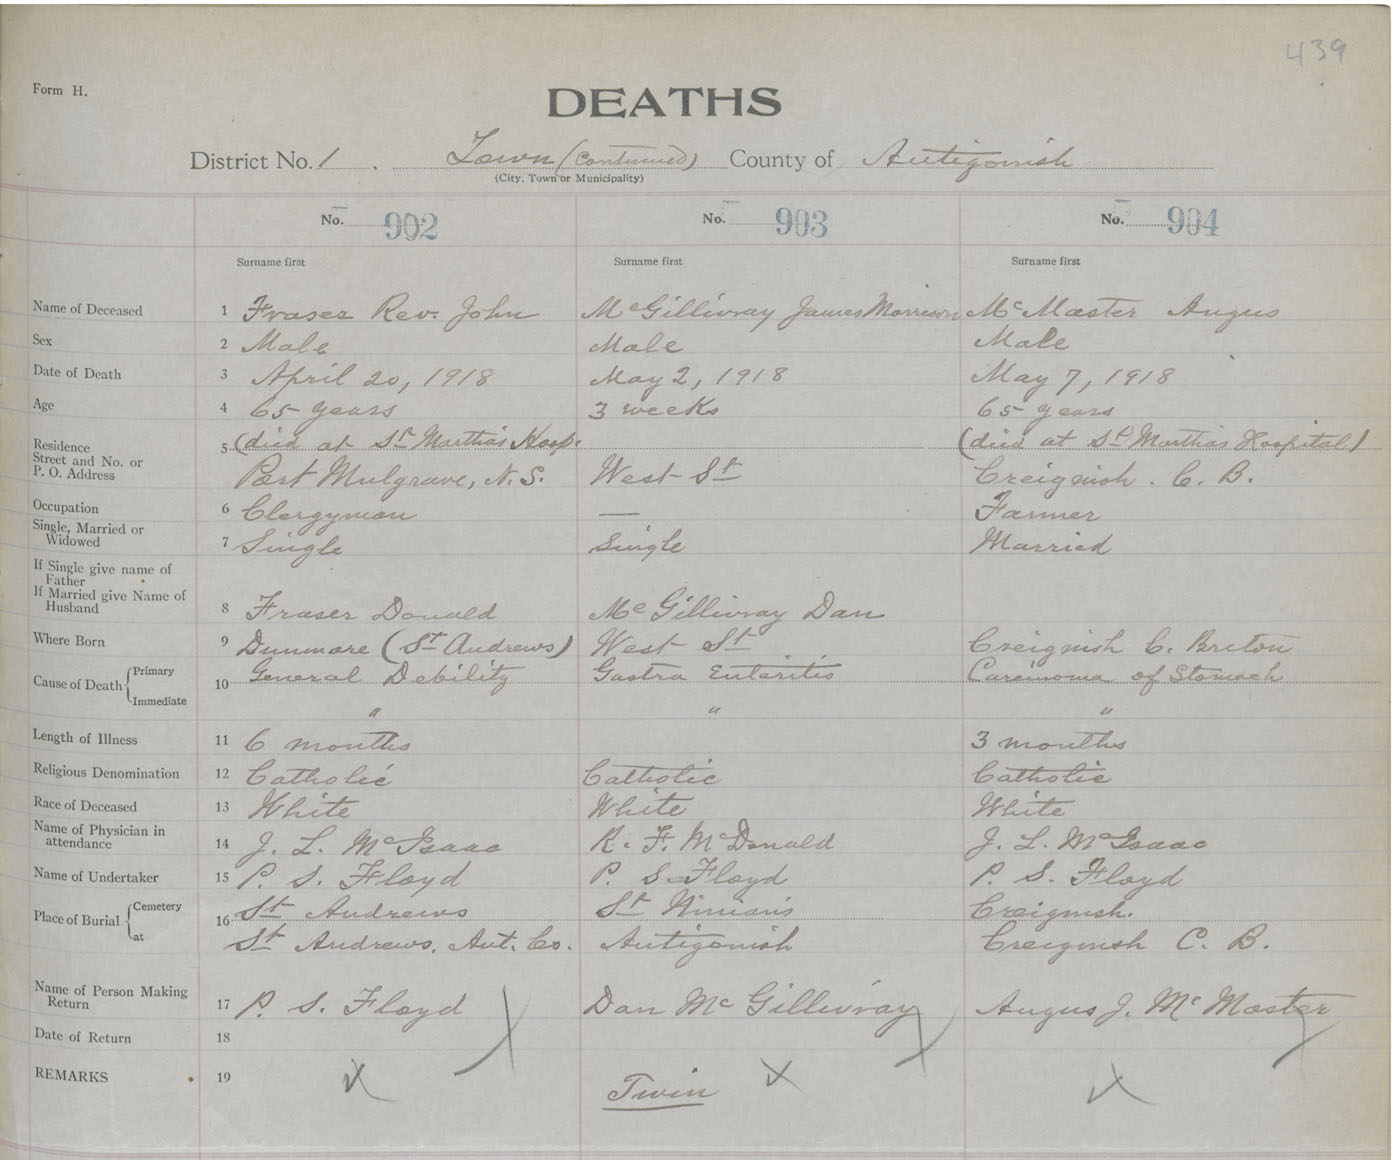 439
Form H.
DEATHS
District No. 1 , Town (Continued) County of Antigonish
(City, Town or Municipality)
No. 902 No. 903 No. 904
Surname first Surname first Surname first
Name of Deceased 1 Fraser Rev. John McGillivray James Morrison McMaster Angus
Sex 2 Male Male Male
Date of Death 3 April 20, 1918 May 2, 1918 May 7, 1918
Age 4 65 years 3 weeks 65 years
Residence 5 (died at St Martha's Hosp. (died at St Martha's Hospital)
Street and No. or
P. O. Address Port Mulgrave, N. S. West St Creignish . C. B.
Occupation 6 Clergyman — Farmer
Single, Married or
Widowed 7 Single Single Married
If Single give name of
Father
If Married give Name of
Husband 8 Fraser Donald McGillivray Dan
Where Born 9 Dunmore (St Andrews) West St Creignish C. Breton
Cause of Death Primary 10 General Debility Gastra Enteritis Carcinoma of Stomach
Immediate " " "
Length of Illness 11 6 months 3 months
Religious Denomination 12 Catholic Catholic Catholic
Race of Deceased 13 White White White
Name of Physician in
attendance 14 J. L. McIsaac R. F. McDonald J. L. McIsaac
Name of Undertaker 15 P. S. Floyd P. S. Floyd P. S. Floyd
Place of Burial Cemetery 16 St Andrews St Ninian's Creignish.
at St Andrews, Ant. Co. Antigonish Creignish C. B.
Name of Person Making
Return 17 P. S. Floyd Dan McGillivray Angus J. McMaster
Date of Return 18
REMARKS 19 Twin